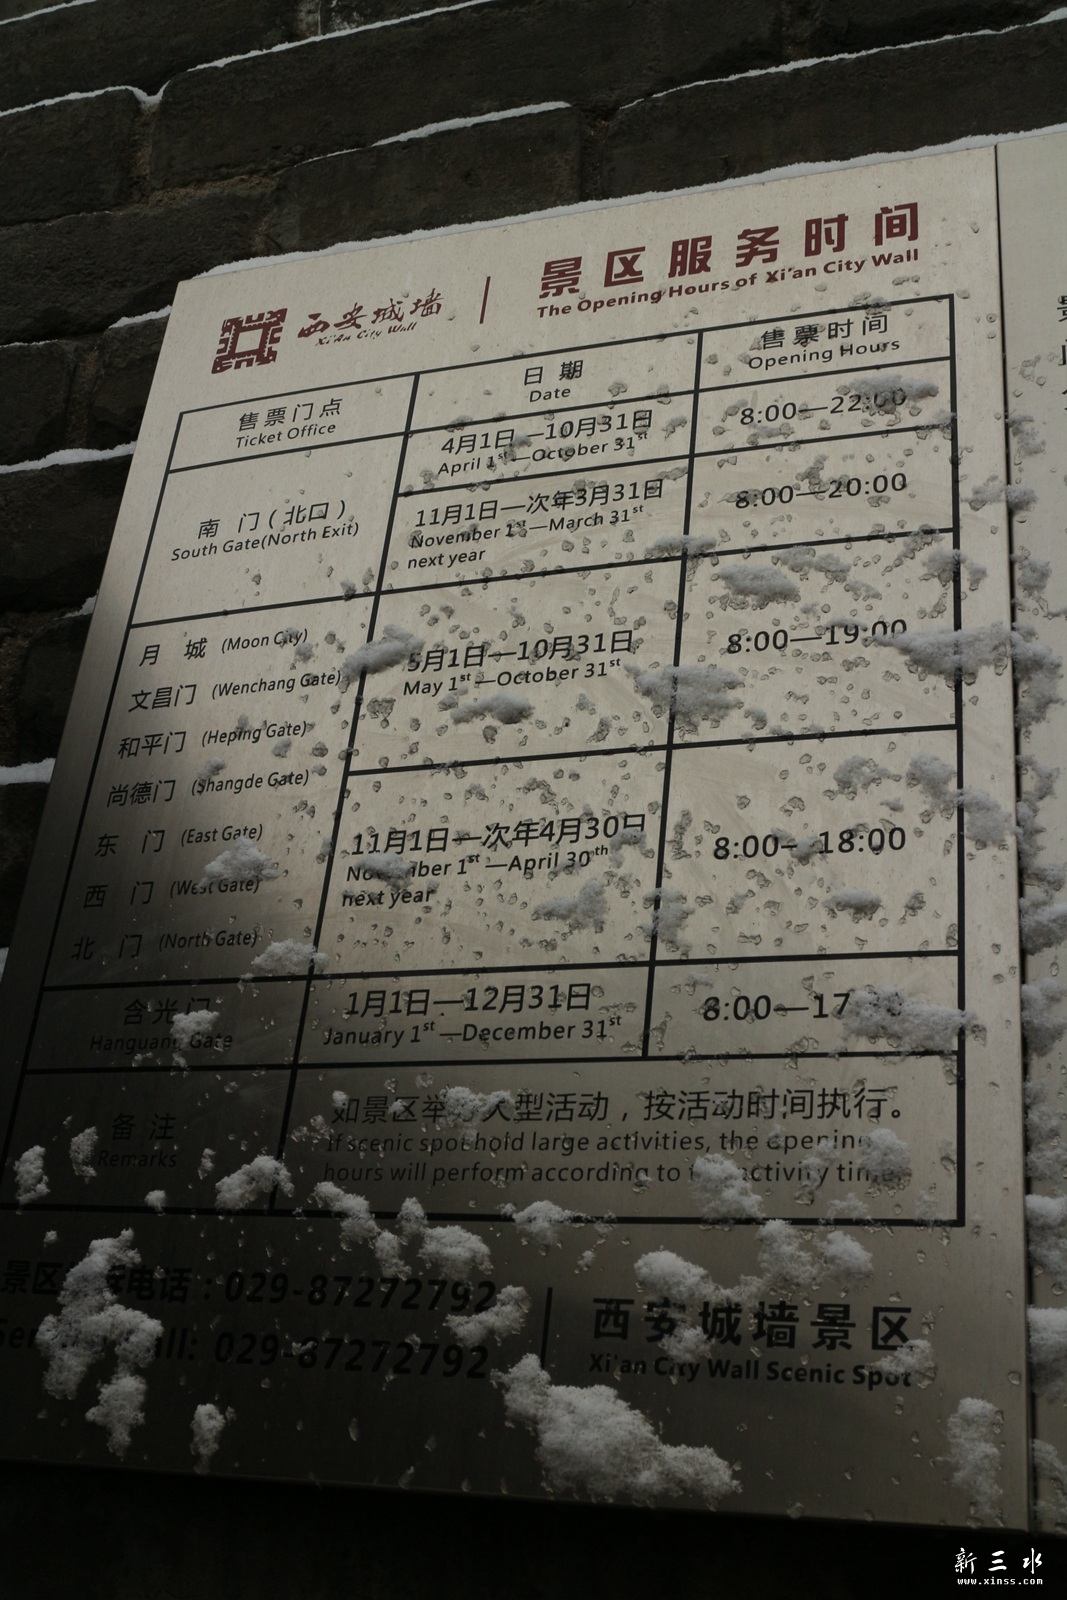 西安城墙
Xi'An City Wall
景区服务时间
The Opening Hours of Xi'an City Wall
售票门点
Ticket Office
日期
Date
售票时间
Opening Hours
南门(北口)
South Gate(North Exit)
4月1日—10月31日
April 1st—October 31st
8:00—22:00
11月1日—次年3月31日
November 1st—March 31st
next year
8:00—20:00
月城 (Moon City)
文昌门 (Wenchang Gate)
和平门 (Heping Gate)
尚德门 (Shangde Gate)
东门 (East Gate)
西门 (West Gate)
北门 (North Gate)
5月1日—10月31日
May 1st—October 31st
8:00—19:00
11月1日—次年4月30日
November 1st—April 30th
next year
8:00—18:00
含光门
Hanguang Gate
1月1日—12月31日
January 1st—December 31st
8:00—17
备注
Remarks
如景区举办大型活动，按活动时间执行。
If scenic spot hold large activities, the opening
hours will perform according to the activity time.
景区 电话：029-87272792
029-87272792
西安城墙景区
Xi'an City Wall Scenic Spot
新三水
www.xinss.com